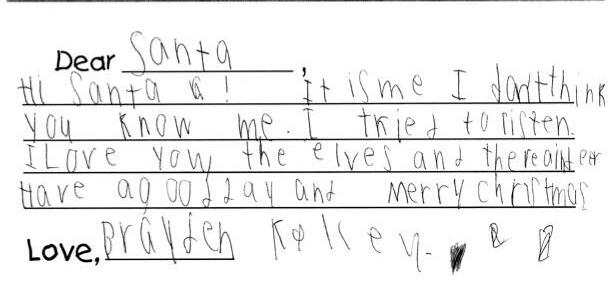 Dear Santa,
Hi Santa a! It is me I dontthink
you know me. I tried to risten.
I Love you, the elves and thereaindeer
Have a good day and Merry christmas
Love, Brayden Kelley.